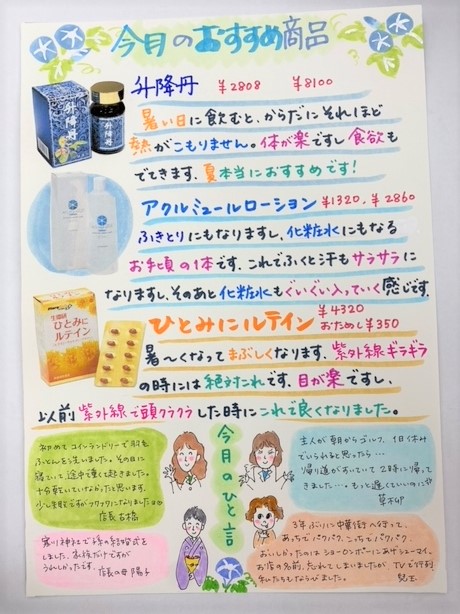 今月のおすすめ商品
升降丹 ¥2808 ¥8100
暑い日に飲むと、からだにそれほど
熱がこもりません。体が楽ですし食欲も
でてきます。夏本当におすすめです!
アクルミュールローション ¥1320、¥2860
ふきとりにもなりますし、化粧水にもなる
お手頃の1本です。これでふくと汗もサラサラに
なりますし、そのあと化粧水もぐいぐい入っていく感じです。
ひとみにルテイン ¥4320
おためし¥350
暑〜くなってまぶしくなります。紫外線ギラギラ
の時には絶対これです。目が楽ですし、
以前紫外線で頭クラクラした時にこれで良くなりました。
升降丹
升降丹
生恵研
ひとみに
ルテイン
今月のひと言
初めてコインランドリーで羽毛
ふとんを洗いました。その日に
寝ていて途中で
十分乾いていなかったと思います。
店長
主人が朝からゴルフ、1日休み
でいられると思ったら…
帰り道がすいていて2時に帰って
きました…。もっと遅くていいのに
寒川神社で孫の結婚式を
しました。家族だけですが
うれしかったです。
店長の母 陽子
3年ぶりに中華街へ行って、
あっちでパクパク、こっちでパクパク
おいしかったのはショーロンポーにあげシューマイ。
お店の名前、忘れてしまいましたが TVで行列
私たちもならびました。